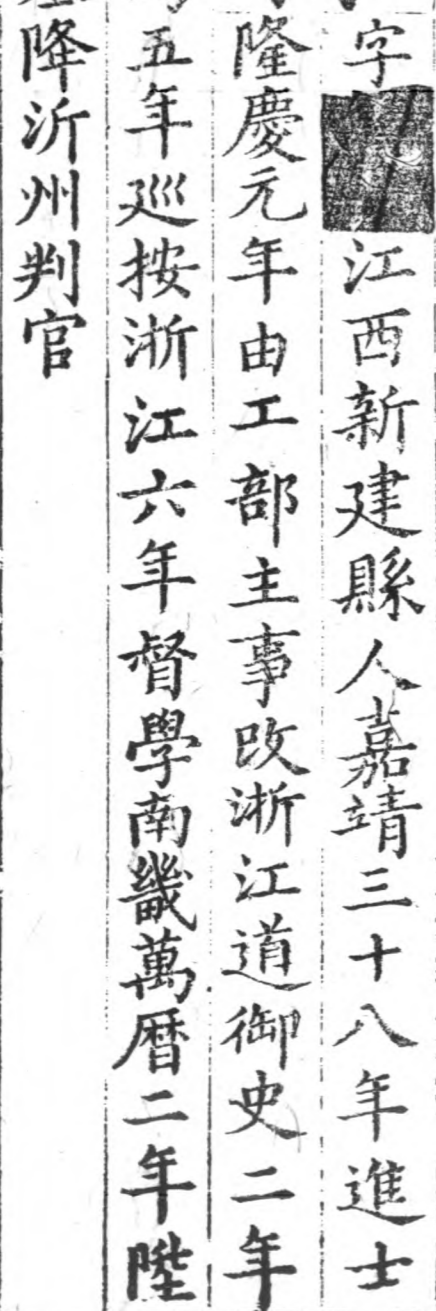 字江西新建縣人嘉靖三十八年進士
隆慶元年由工部主事改浙江道御史二年
五年巡按浙江六年督學南畿萬曆二年陞
降沂州判官